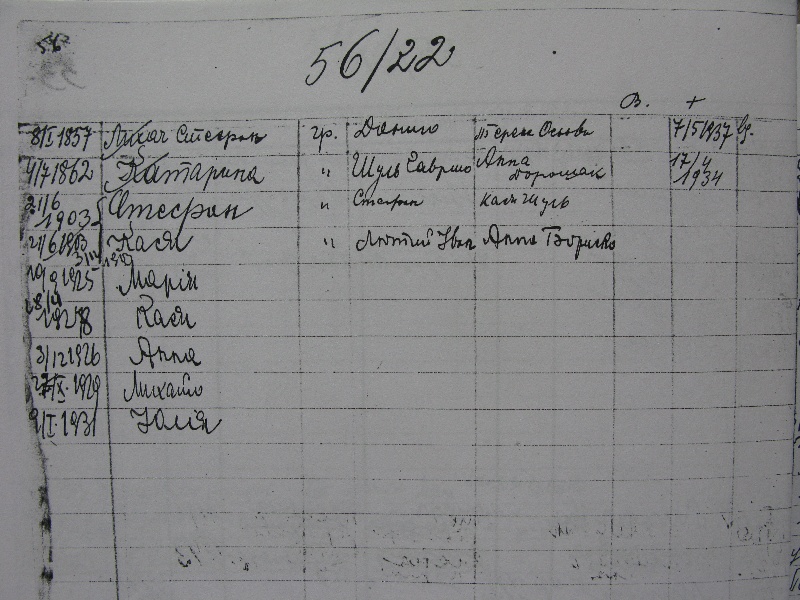 56/22
В. +
8/I 1857 Лизач Стефан гр. Данило Терен 7/5 1937
4/7 1862 Катарина " Шуль Гаврило Анна Дорощак 17/4 1934
21/6 1903 Стефан " Стефан Кася Шуль
21/6 1903 Кася " Лютий Іван Анна Бориско
3/IV
10/9 1925 Марія
28/4 1928 Кася
3/12 1926 Анна
27/IX. 1929 Михайло
9/I. 1931 Юлія